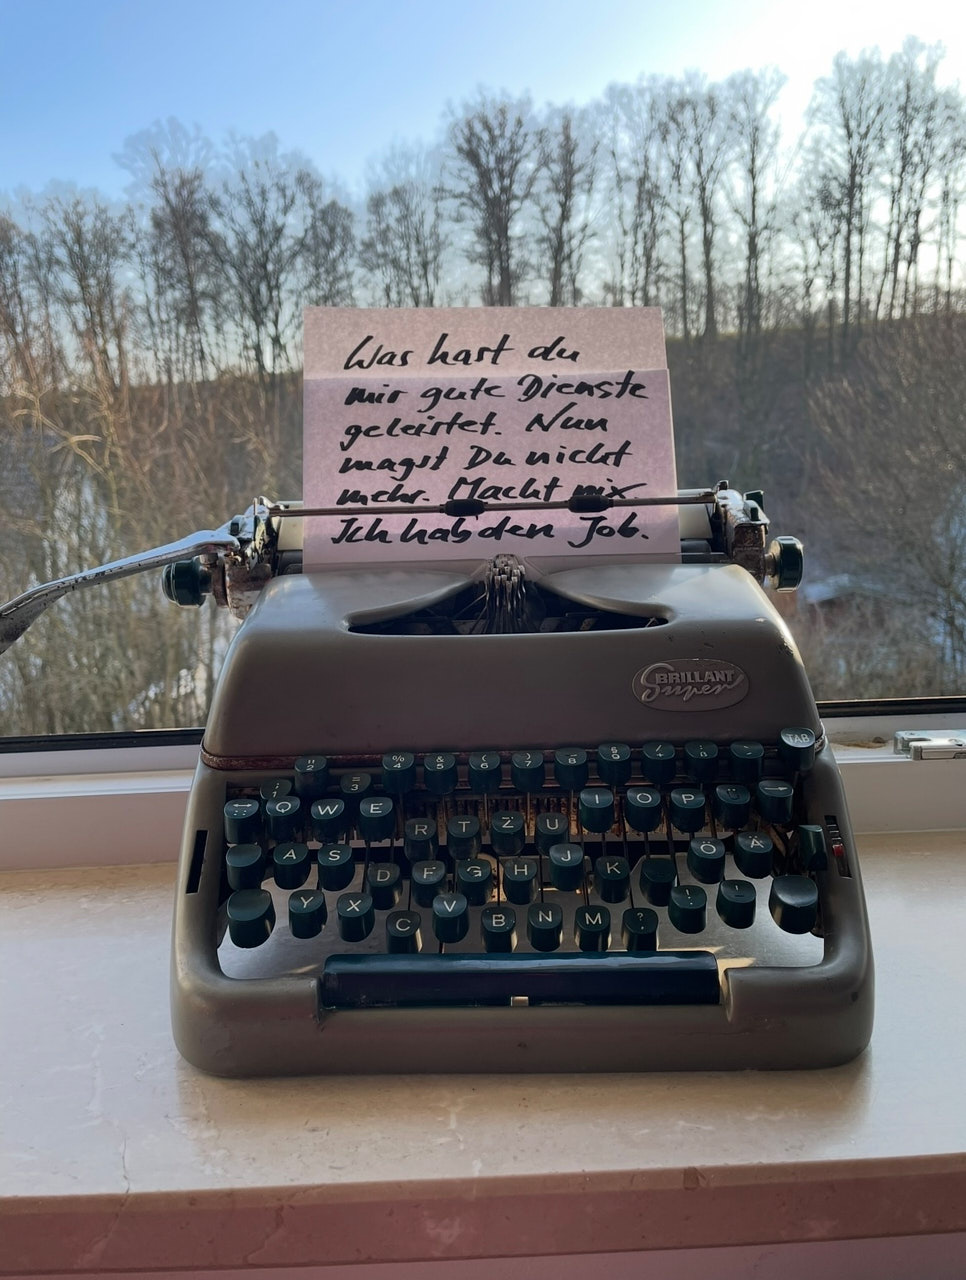 Was hast du
mir gute Dienste
geleistet. Nun
magst Du nicht
mehr. Macht nix.
Ich hab den Job.
BRILLANT
Super
TAB
" 2
= 3
% 4
& 5
( 6
) 7
8
§ 9
/
ß
1
Q W E R T Z U I O P Ü
A S D F G H J K Ö Ä
Y X C V B N M ? ! -